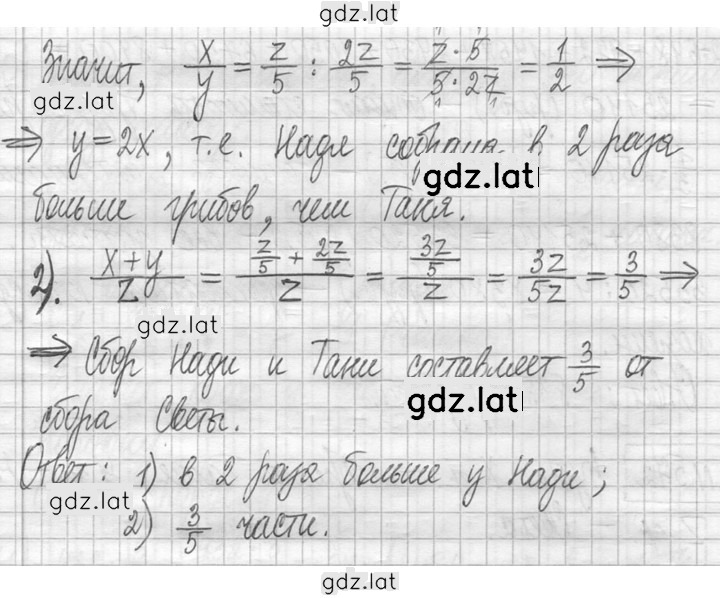 gdz.lat
Значит, x/y = z/5 : 2z/5 = z·5/5·2z = 1/2 ⇒
gdz.lat
⇒ y = 2x, т.е. Надя собрала в 2 раза
gdz.lat
больше грибов, чем Таня.
2). x+y/z = z/5 + 2z/5 / z = 3z/5 / z = 3z/5z = 3/5 ⇒
gdz.lat
⇒ Сбор Нади и Тани составляет 3/5 от
gdz.lat
сбора Светы.
Ответ: 1) в 2 раза больше у Нади;
gdz.lat
2) 3/5 части.
gdz.lat